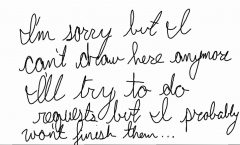 I'm sorry but I
can't draw here anymore
I'll try to do
requests but I probably
won't finish them...